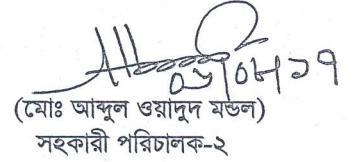 ০৮/০৮/১৭
(মোঃ আব্দুল ওয়াদুদ মন্ডল)
সহকারী পরিচালক-২